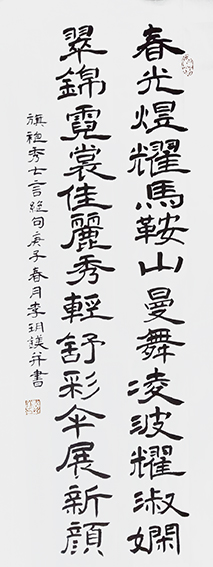 春光煜耀馬鞍山曼舞凌波耀淑嫻
翠錦霓裳佳麗秀輕舒彩傘展新顏
旗袍秀七言絕句庚子春月李玥鎂并書